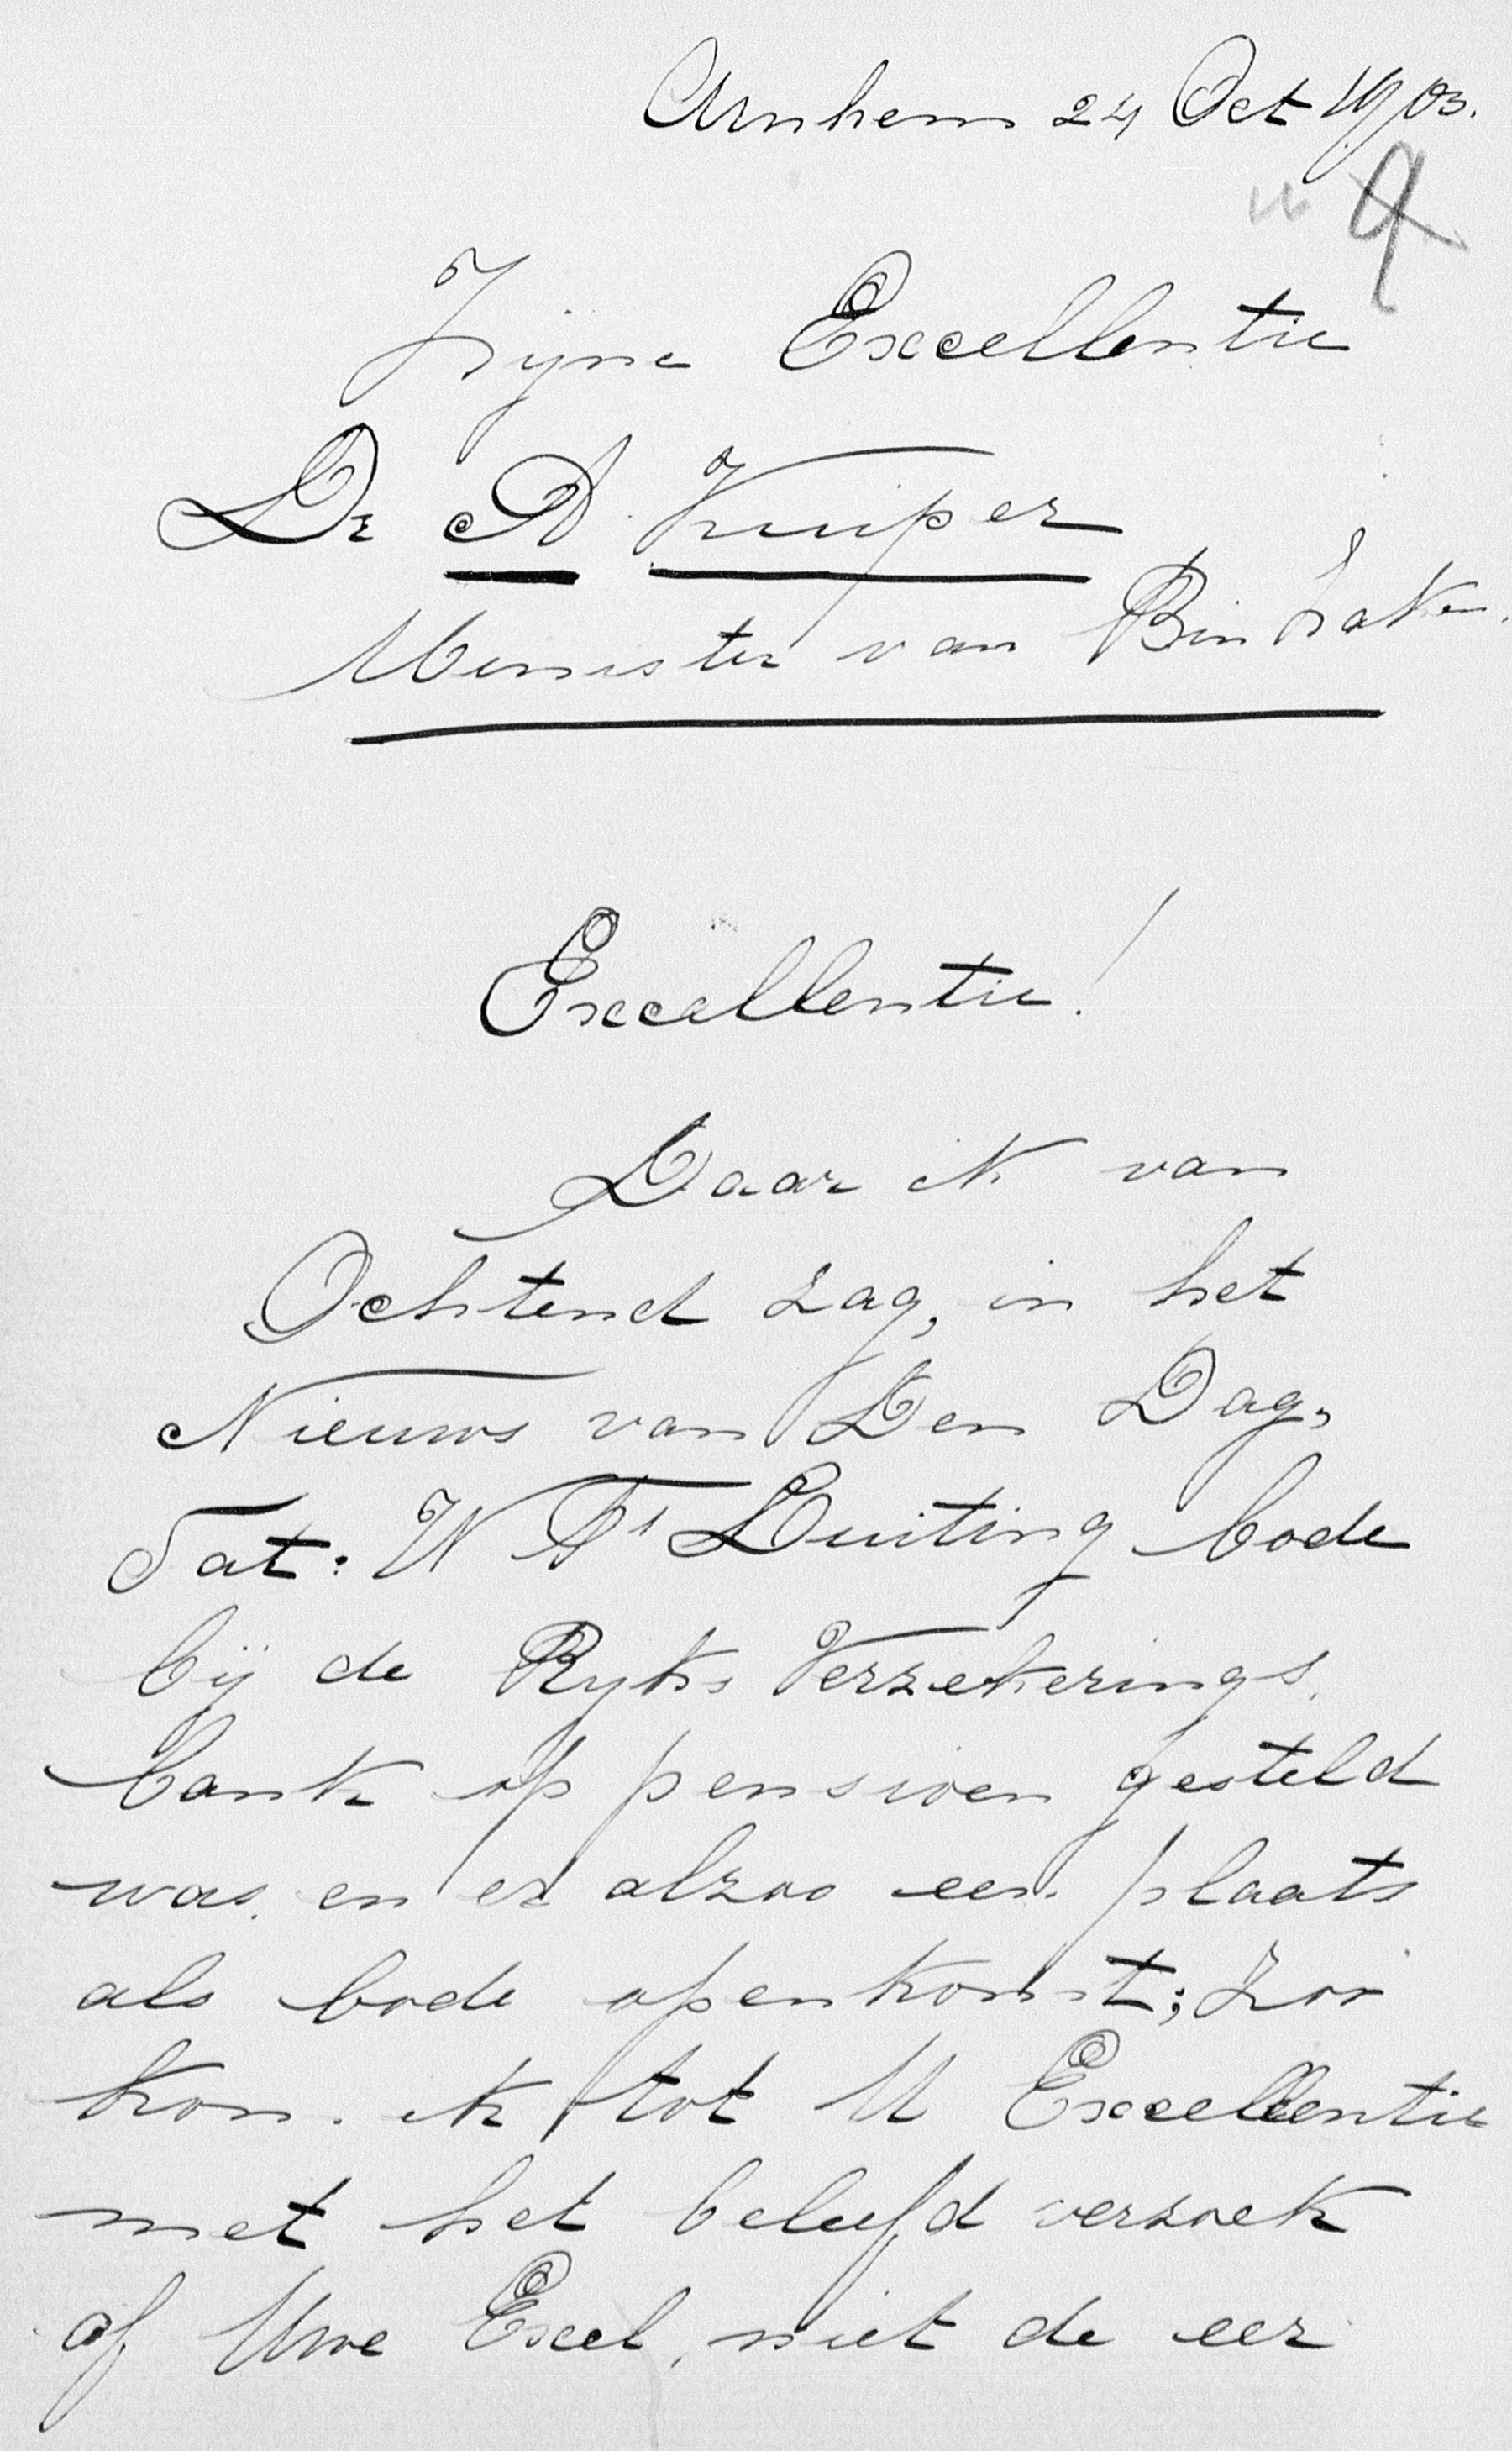 Arnhem 24 Oct 1903.
Zijne Excellentie
Dr A Kuiper
Minister van Bin Zaken.
Excellentie!
Daar ik van
Ochtend zag, in het
Nieuws van Den Dag,
dat: W Fs Luiting bode
bij de Ryks Verzekerings.
bank op pensioen gesteld
was. en er alzoo een plaats
als bode openkomt; zoo
kom. ik tot U Excellentie
met het beleefd verzoek
of Uwe Excel, niet de eer